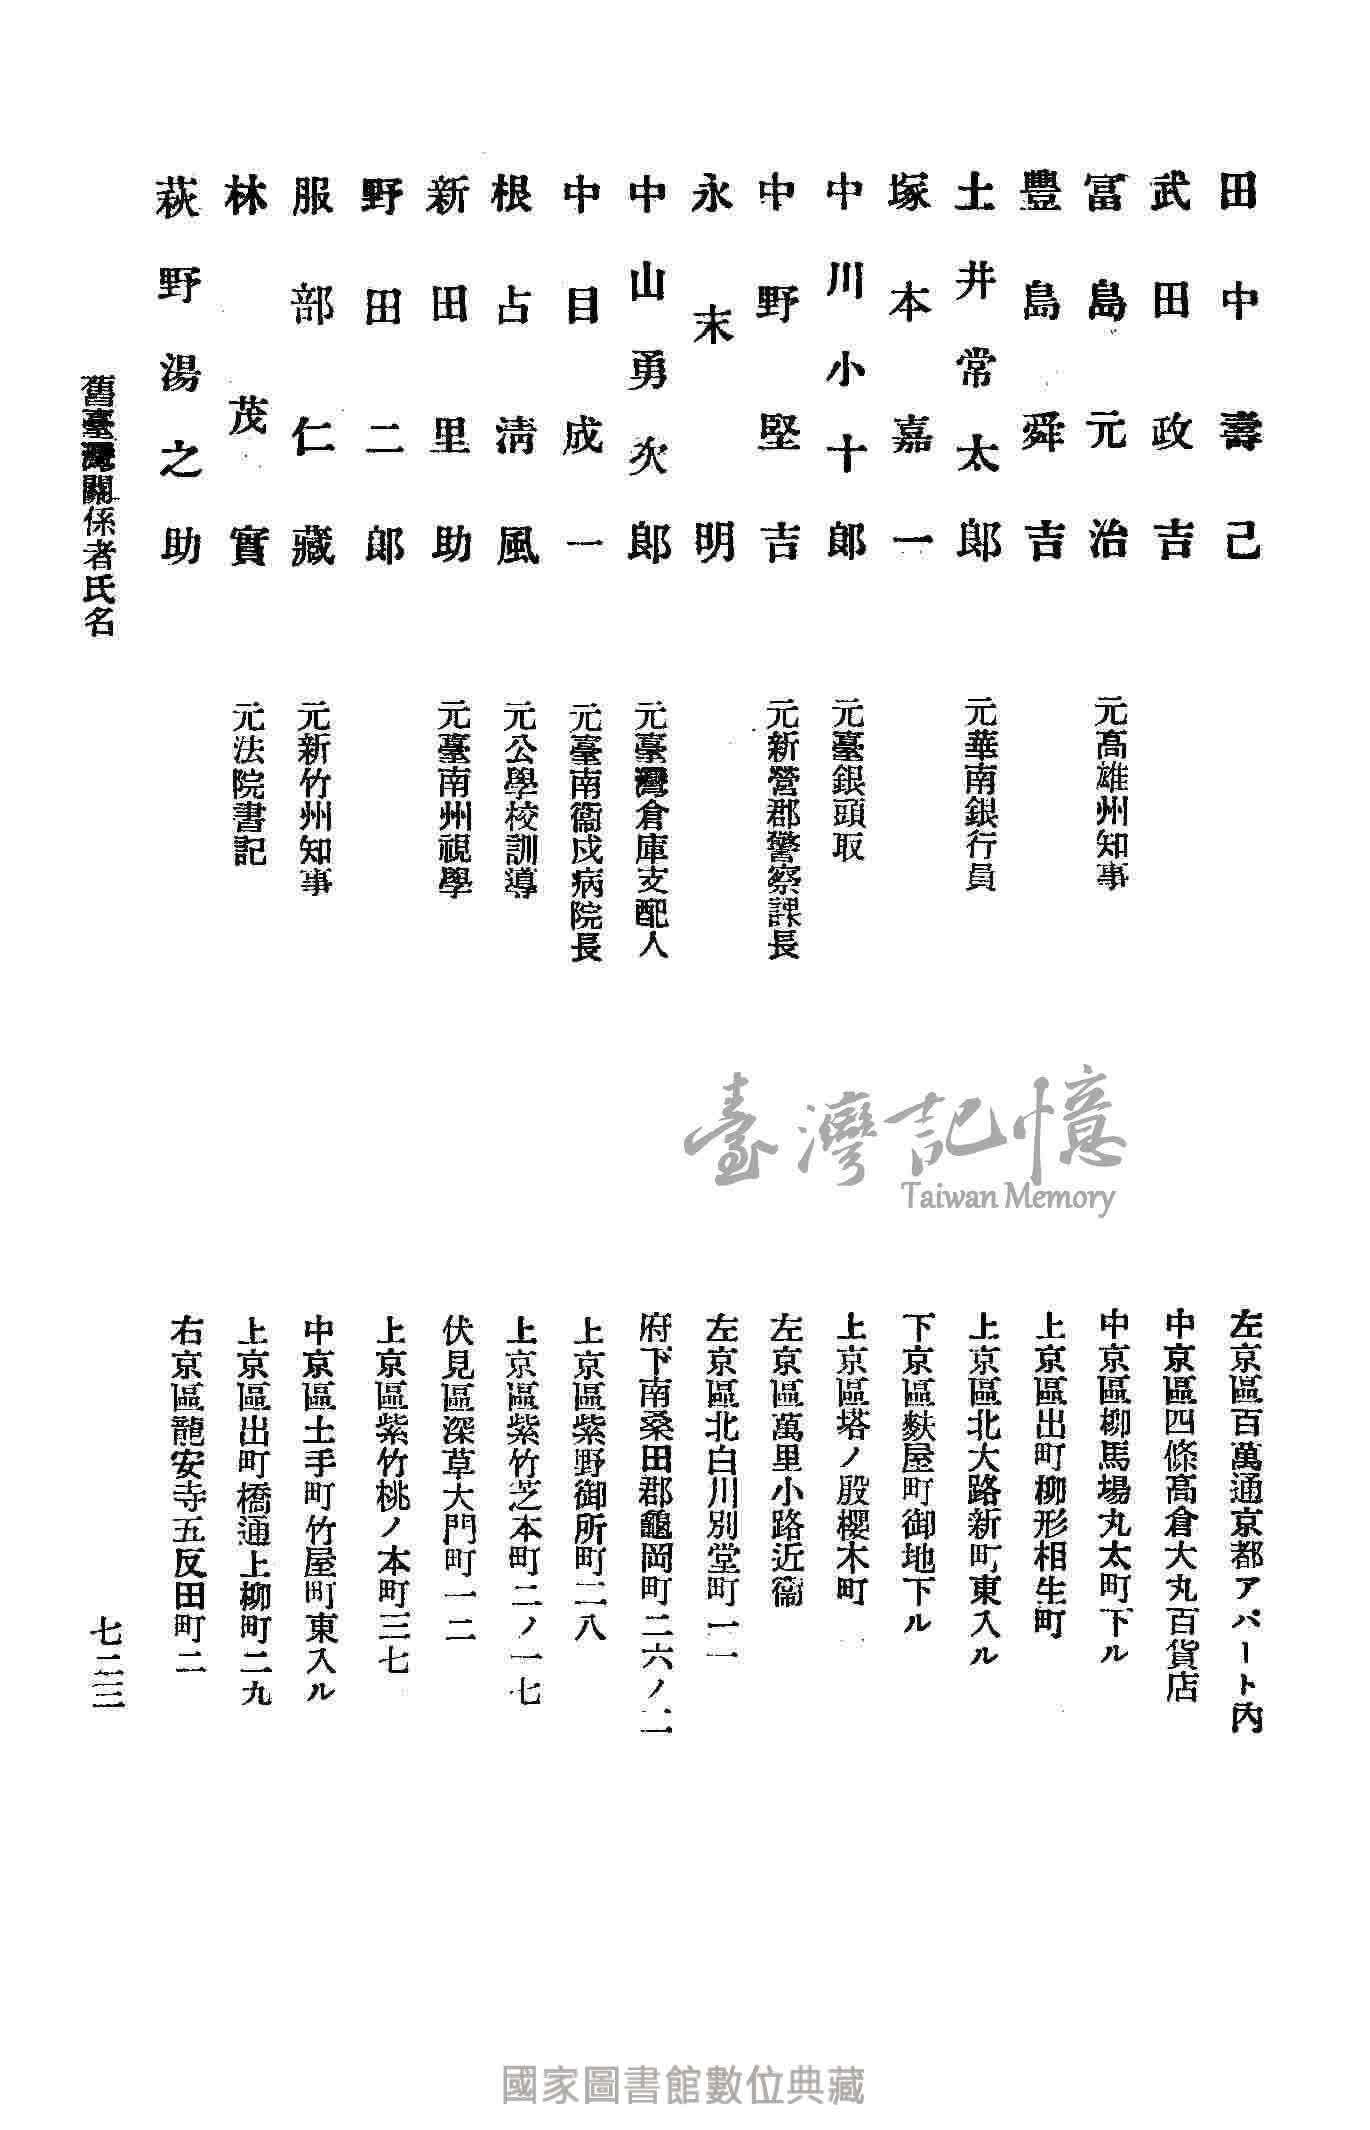 田中壽己　左京區百萬通京都アパート內
武田政吉　中京區四條高倉大丸百貨店
冨島元治　元高雄州知事　中京區柳馬場丸太町下ル
豐島舜吉　上京區出町柳形相生町
土井常太郎　元華南銀行員　上京區北大路新町東入ル
塚本嘉一　下京區麩屋町御地下ル
中川小十郎　元臺銀頭取　上京區塔ノ殿櫻木町
中野堅吉　元新營郡警察課長　左京區萬里小路近衞
永末明　左京區北白川別堂町一一
中山勇次郎　元臺灣倉庫支配人　府下南桑田郡龜岡町二六ノ二
中目成一　元臺南衞戍病院長　上京區紫野御所町二八
根占淸風　元公學校訓導　上京區紫竹芝本町二ノ一七
新田里助　元臺南州視學　伏見區深草大門町一二
野田二郎　上京區紫竹桃ノ本町三七
服部仁藏　元新竹州知事　中京區土手町竹屋町東入ル
林茂實　元法院書記　上京區出町橋通上柳町二九
萩野湯之助　右京區龍安寺五反田町二
舊臺灣關係者氏名　七二三
臺灣記憶
Taiwan Memory
國家圖書館數位典藏